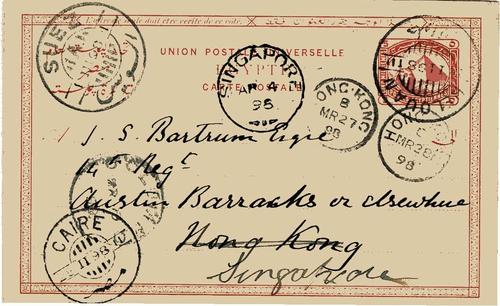 L'adresse seule doit être écrite de ce côté.
UNION POSTALE UNIVERSELLE
EGYPTE
CARTE POSTALE
SUEZ
SINGAPORE
AP 4
98
HONG-KONG
B
MR 27
98
HONG
C
MR 28
98
J. S. Bartrum Esqre
14th Regt
Austin Barracks or elsewhere
Hong Kong
Singapore
CAIRE
II 98